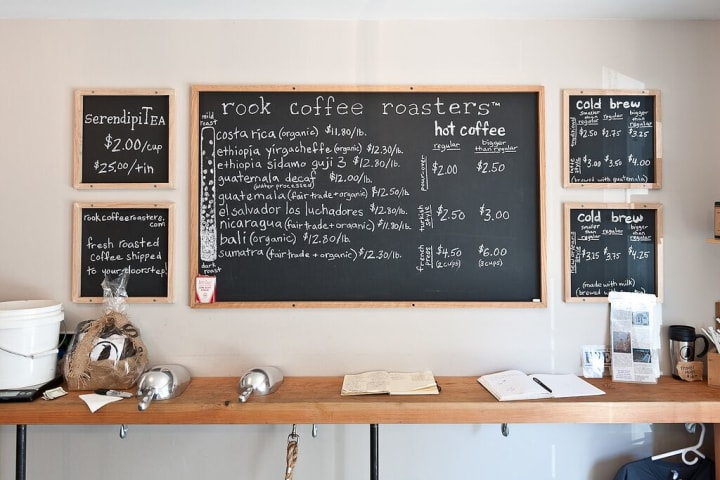 serendipiTEA
$2.00/cup
$25.00/tin
rookcoffeeroasters.
com
fresh roasted
coffee shipped
to your doorstep!
rook coffee roasters™
mild
roast
costa rica (organic) $11.80/lb.
ethiopia yirgacheffe (organic) $12.30/lb.
ethiopia sidamo guji 3 $12.80/lb.
guatemala decaf $12.00/lb.
(water processed)
guatemala (fair trade + organic) $12.50/lb
el salvador los luchadores $12.80/lb.
nicaragua (fair trade + organic) $11.80/lb.
bali (organic) $12.80/lb.
sumatra (fair trade + organic) $12.30/lb.
dark
roast
hot coffee
regular bigger than regular
pour-over $2.00 $2.50
turkish style $2.50 $3.00
french press $4.50 $6.00
(2 cups) (3 cups)
cold brew
smaller than regular regular bigger than regular
traditional $2.50 $2.75 $3.25
style $3.00 $3.50 $4.00
(brewed with guatemala)
cold brew
smaller than regular regular bigger than regular
new orleans style $3.25 $3.75 $4.25
(made with milk)
(brewed with